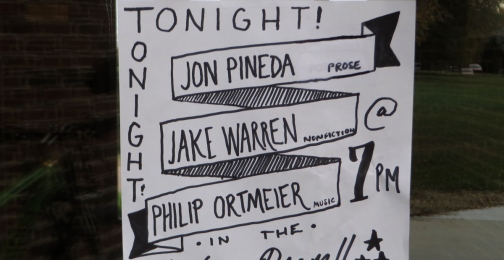 TONIGHT!
TONIGHT!
JON PINEDA PROSE
JAKE WARREN NONFICTION
@
7PM
PHILIP ORTMEIER MUSIC
·IN THE·